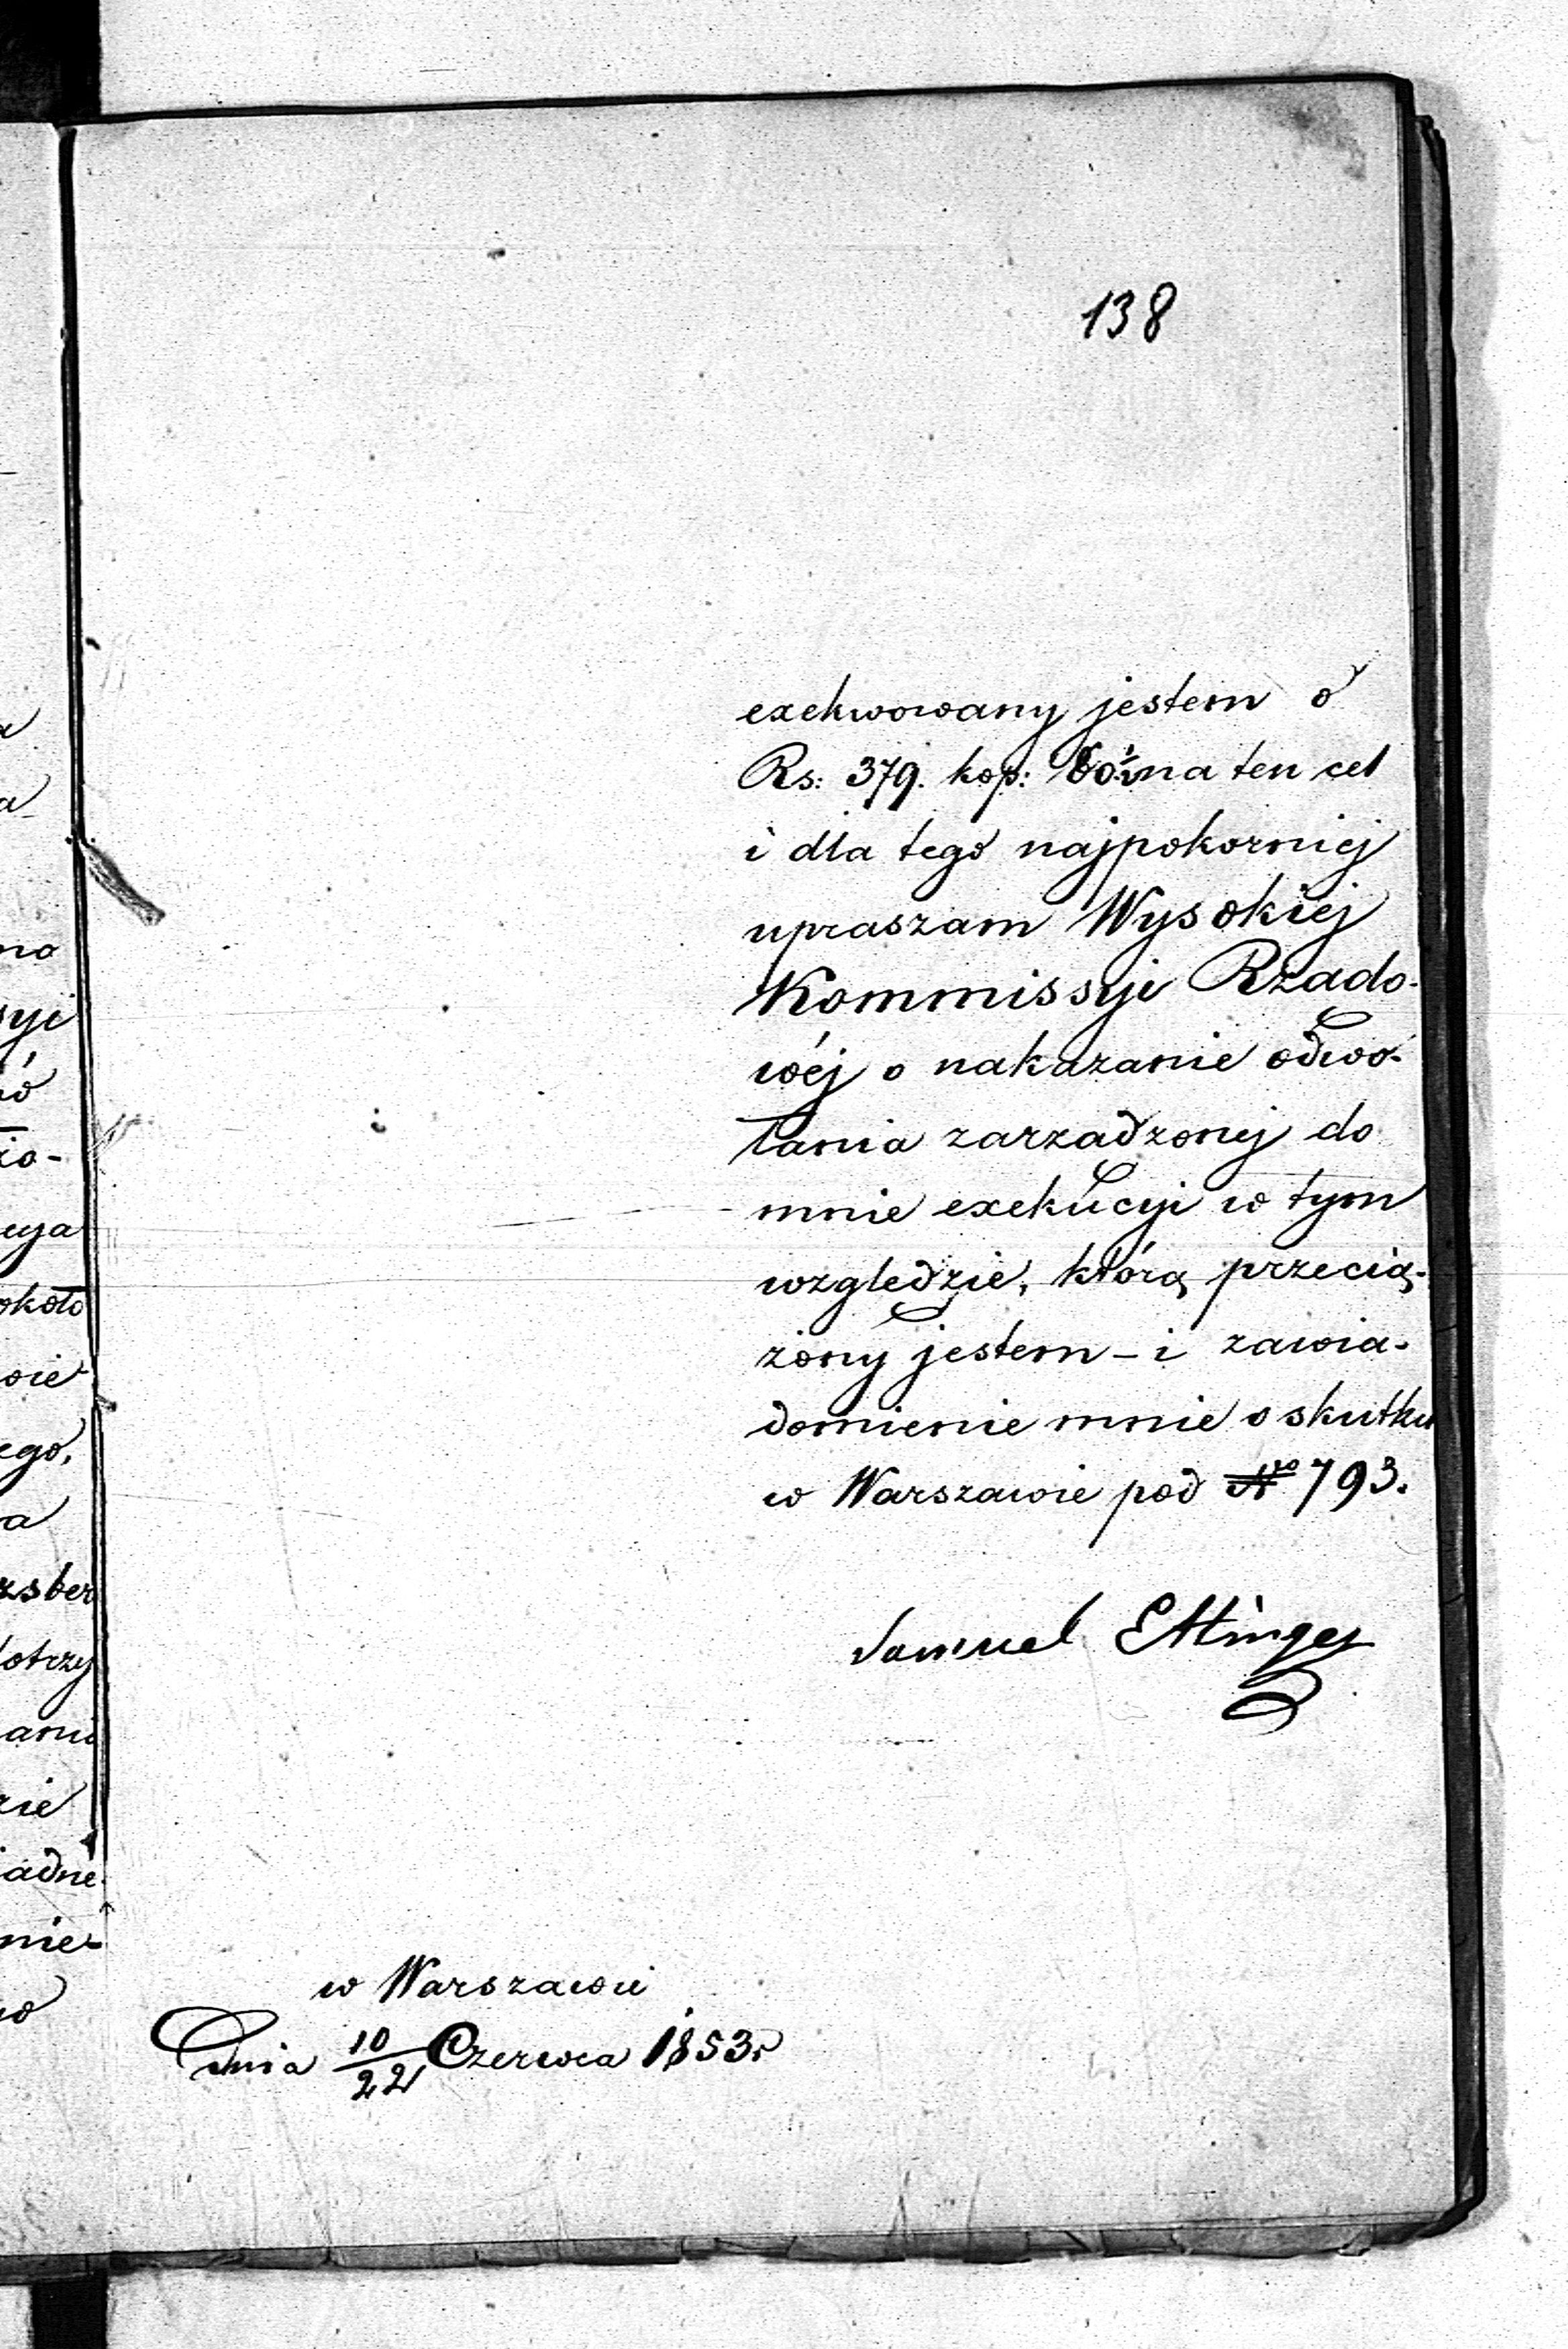 138
exekwowany jestem o
Rs: 379. kop: 80½ na ten cel
i dla tego najpokorniej
upraszam Wysokiej
Kommissyi Rządo-
wéj o nakazanie odwo-
łania zarządzonej do
mnie exekucyi w tym
względzie, którą przecią-
żony jestem - i zawia-
domienie mnie o skutku
w Warszawie pod No 793.
Samuel Ettinger
w Warszawie
Dnia 10/22 Czerwca 1853 r
no
syi
żo-
cya
około
wie
ego,
a
zsber
otrzy
ami
zie
adne
nie